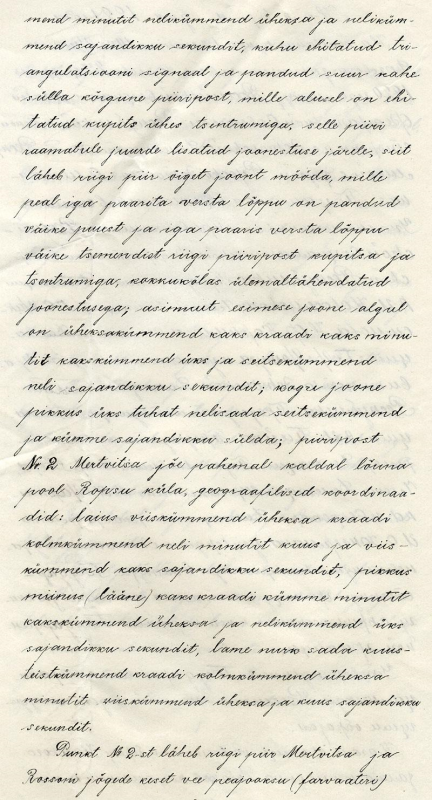 mend minutit nelikümmend üheksa ja neliküm-
mend sajandikku sekundit, kuhu ehitatud tri-
angulatsiooni signaal ja pandud suur kahe-
sülla kõrgune piiripost, mille alusel on ehi-
tatud kupits ühes tsentrumiga, selle piiri
raamatule juurde lisatud joonestuse järele, siit
läheb riigi piir õiget joont mööda, mille
peal iga paarita versta lõppu on pandud
väike puust ja iga paaris versta lõppu
väike tsemendist riigi piiripost kupitsa ja
tsentrumiga, kokkukõlas ülemaltähendatud
joonestusega; asimuut esimese joone algul
on üheksakümmend kaks kraadi kaks minu-
tit kakskümmend üks ja seitsekümmend
neli sajandikku sekundit; kogu joone
pikkus üks tuhat nelisada seitsekümmend
ja kümme sajandikku sülda; piiripost
№ 2 Mertvitsa jõe pahemal kaldal lõuna
pool Ropsu küla, geograafilised koordinaa-
did: laius viiskümmend üheksa kraadi
kolmkümmend neli minutit kuus ja viis-
kümmend kaks sajandikku sekundit, pikkus
miinus (lääne) kaks kraadi kümme minutit
kakskümmend üheksa ja nelikümmend üks
sajandikku sekundit, lame nurk sada kuus-
teistkümmend kraadi kolmkümmend üheksa
minutit viiskümmend üheksa ja kuus sajandikku
sekundit.
Punkt № 2-st läheb riigi piir Mertvitsa ja
Rossoni jõgede keset vee peajooksu (farvaateri)